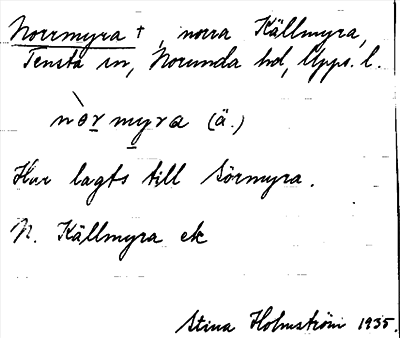 Norrmyra †, norra Källmyra,
Tensta sn, Norunda hd, Upps. l.
nòr myra (ä.)
Har lagts till Sörmyra.
N. Källmyra ek
Stina Holmström 1935.